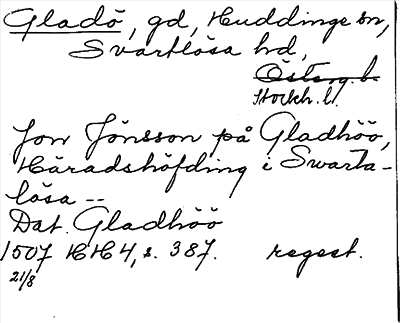 Gladö, gd, Huddinge sn,
Svartlösa hd,
Österg. l.
Stockh. l.
Jon Jönsson på Gladhöö,
Häradshöfding i Swarta-
lösa --
Dat. Gladhöö
1507 HH4, s. 387. regest.
21/8